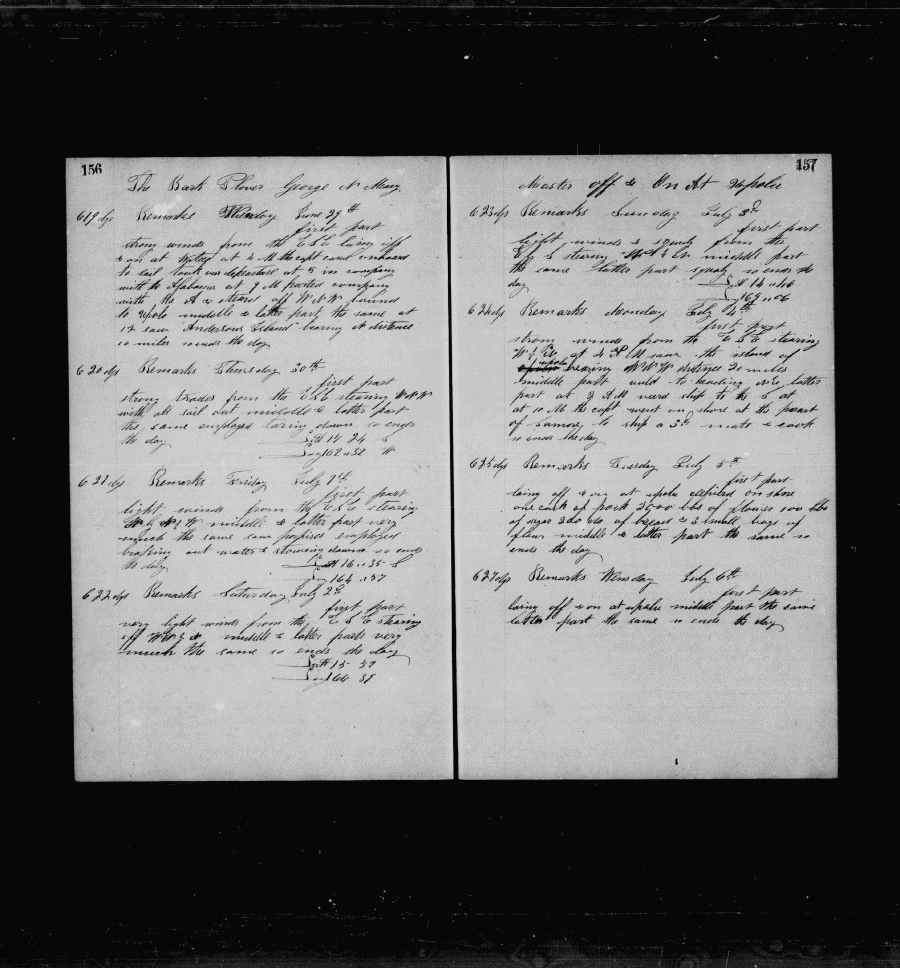 156
The Bark Plover George N Macy
619 dys Remarks June 29th
first part
strong winds from the ESE laing off
& on at at 4 M the capt came onboard
to sail took our departure at 5 in company
with the Alabama at 9 M parted company
with the A & steard off W N W bound
to Upolo middle & latter part the same at
12 saw Andersons Island bearing N distance
10 miles so ends the day
620 dys Remarks Thursday 30th
first part
strong trades from the ESE stearing WNW
with all sail out middle & latter part
the same employed laring down so ends
the day
Lat 14 24 S
Long 162 " 32 W
621 dys Remarks Friday July 1st
first part
light winds from the ESE stearing
middle & latter part very
much the same saw porpises employed
out water & stowing down so ends
the day
Lat 16 " 35 S
Long 164 " 57
622 dys Remarks Saturday July 2d
first part
very light winds from the ESE stearing
off middle & latter parts very
much the same so ends the day
Lat 15 52
Long 166 38
157
Master off & On At Upolu
623 dys Remarks Sunday July 3d
first part
light winds & squaly from the
E by S stearing middle part
the same latter part squaly so ends the
day
Lat 14 " 46
Long 169 " 06
624 dys Remarks Monday July 4th
first part
strong winds from the ESE stearing
at 4 P M saw the island of
upolu
bearing WNW distance 20 miles
middle part heading NE latter
part at 2 A M ship to the S at
at 10 M the capt went on shore at the
of samore to ship a 3d mate & cook
so ends the day
625 dys Remarks Tuesday July 5th
first part
laing off & on at upolu on shore
one cask of pork 2000 lbs of flower 100 lbs
of sugar 300 lbs of bread & 3 small bags of
flour middle & latter part the same so
ends the day
627 dys Remarks Wensday July 6th
first part
laing off & on at upolu middle part the same
latter part the same so ends the day